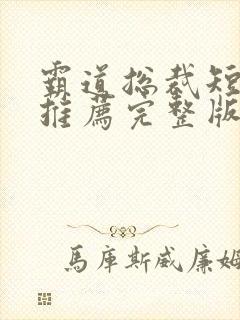 霸道总裁短
推薦完整版
馬庫斯威廉姆